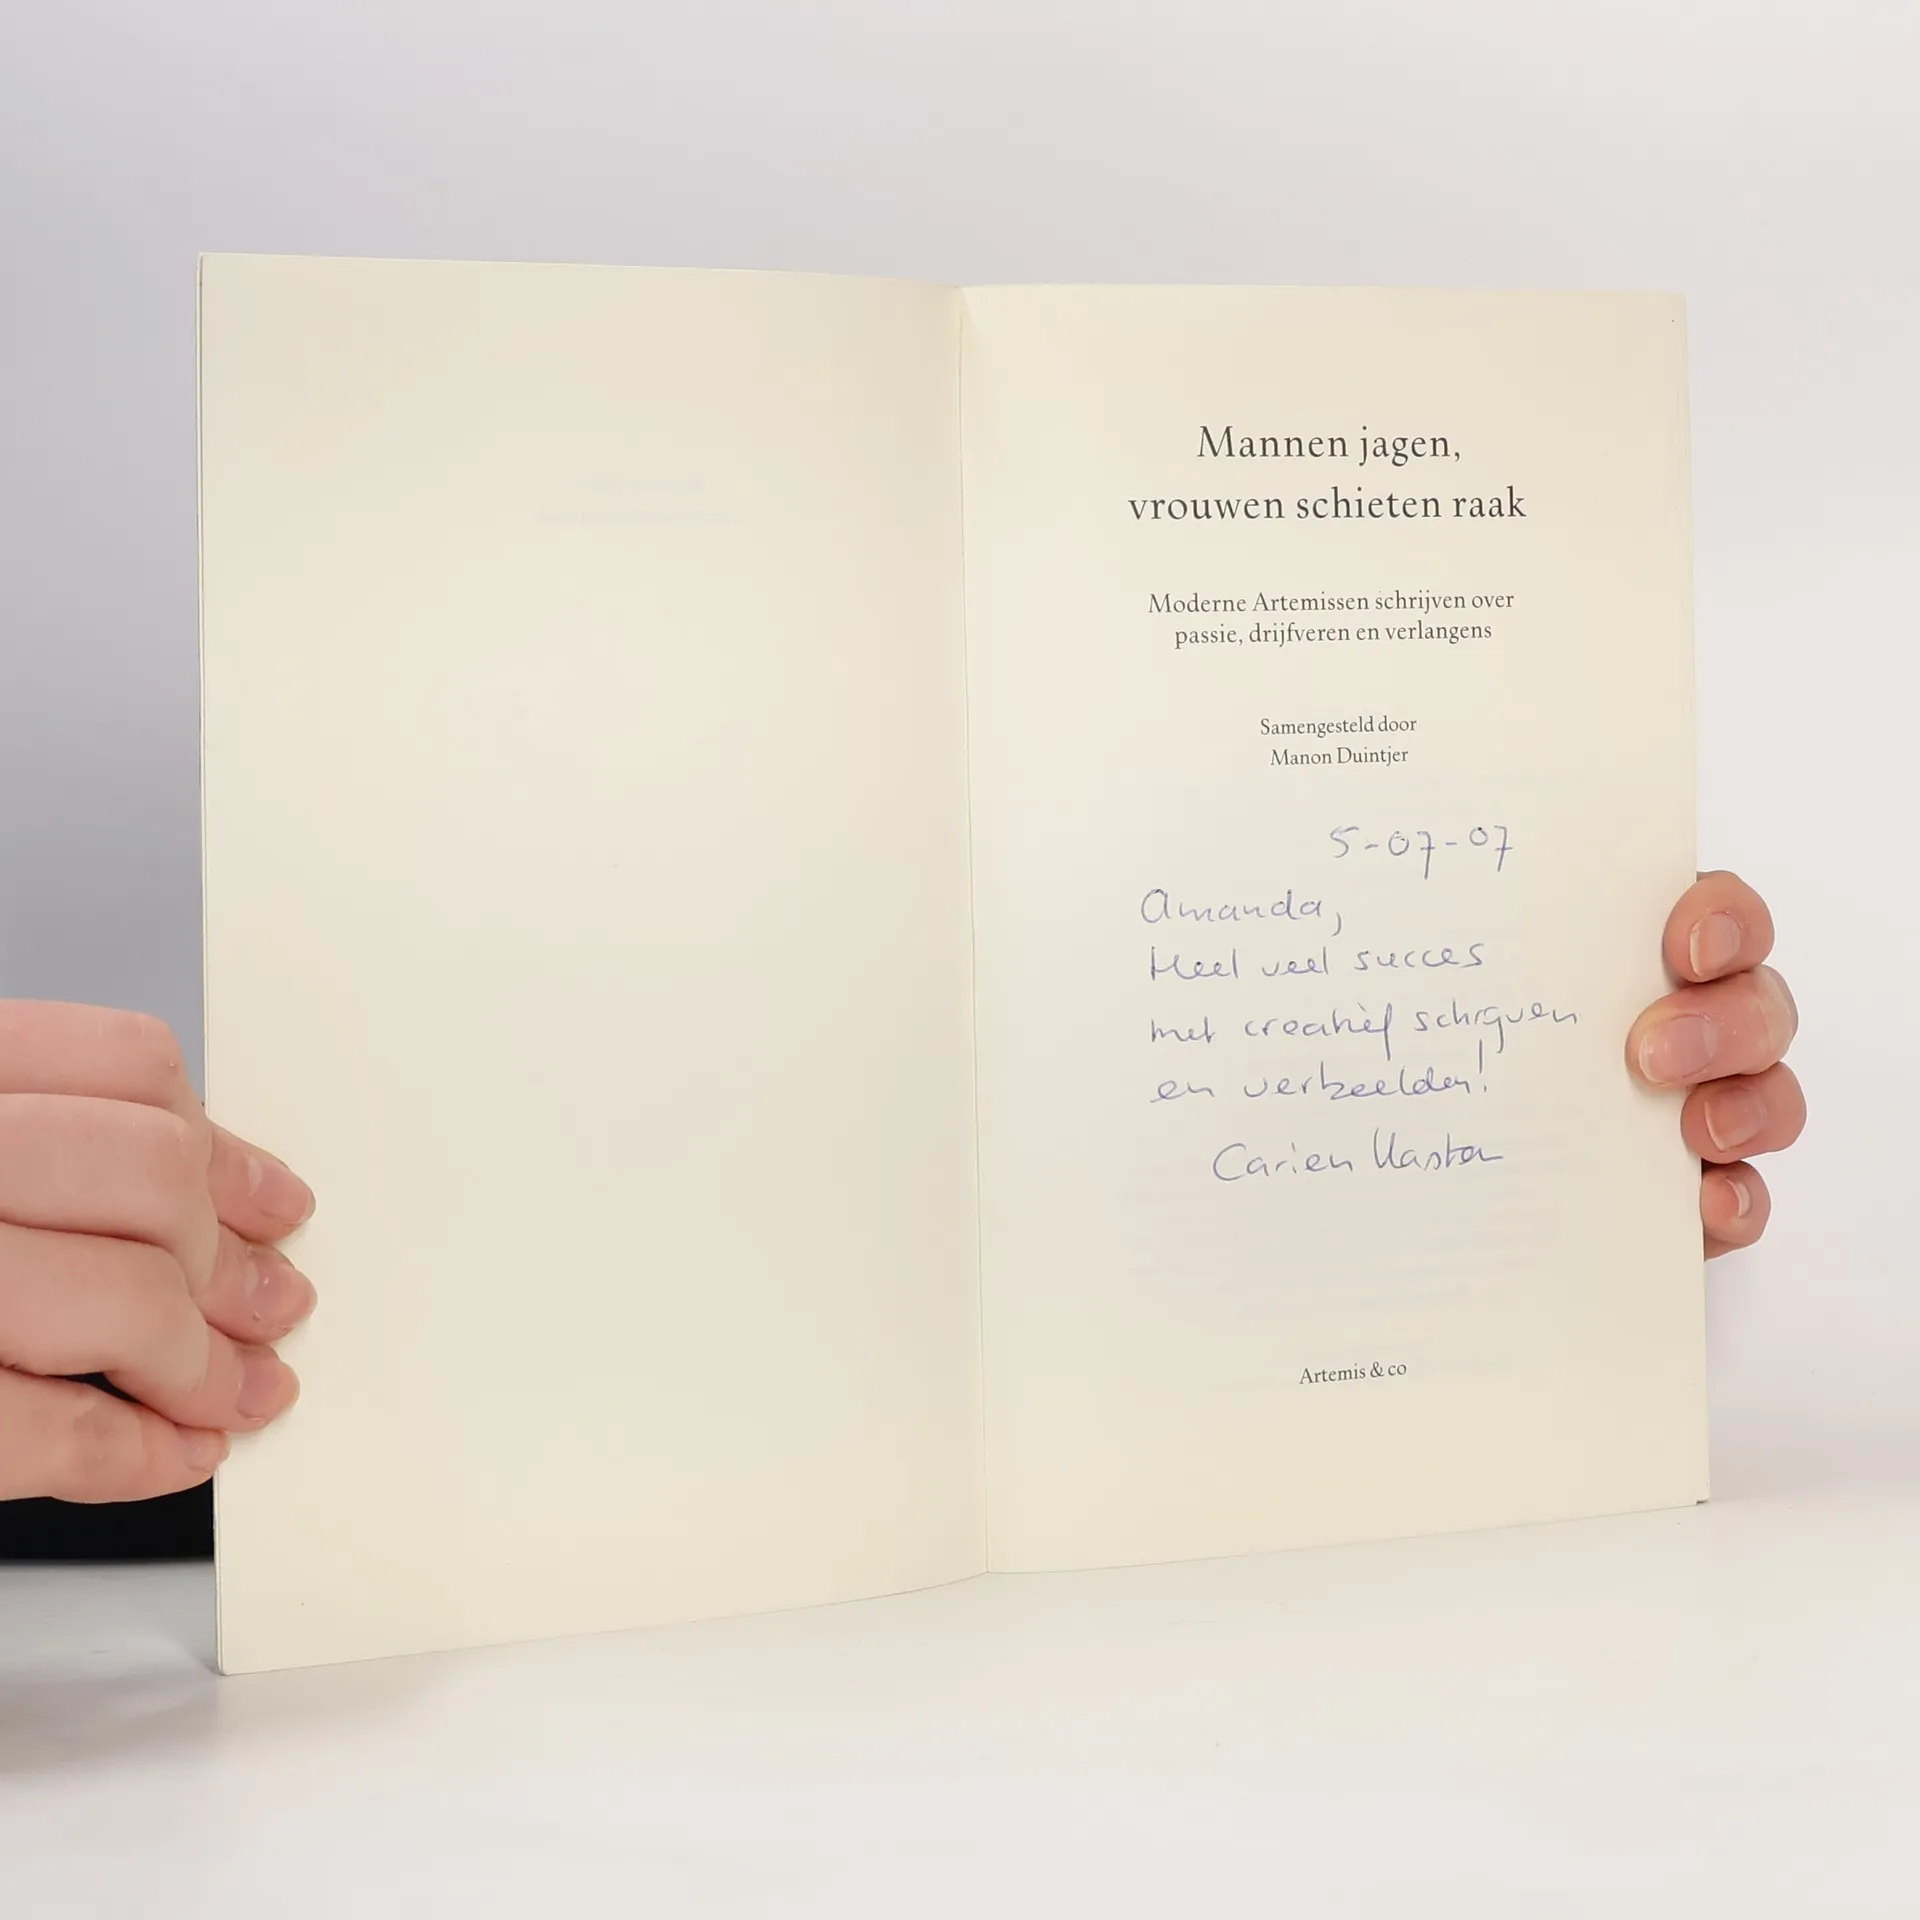 Mannen jagen,
vrouwen schieten raak
Moderne Artemissen schrijven over
passie, drijfveren en verlangens
Samengesteld door
Manon Duintjer
5-07-07
Amanda,
Heel veel succes
met creatief schrijven
en verbeelden!
Carien
Artemis & co